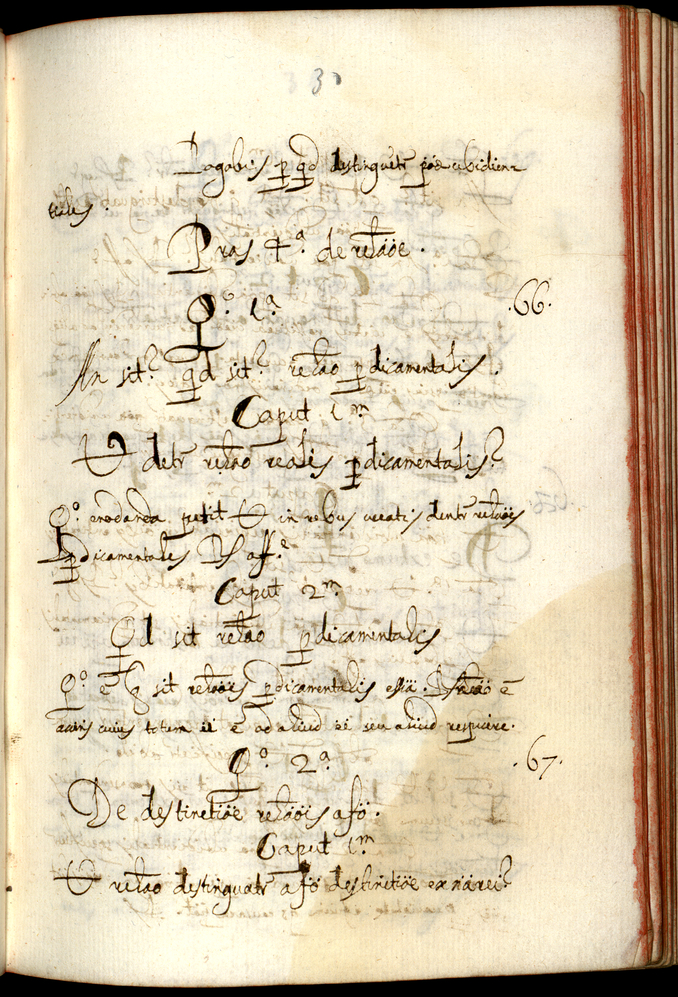 33
Rogabis p qd destinguētr põe obidien
tiales.
Pras 4ª de relãoe.
Qº 1ª
.66.
An sit? qd sit? relão pdicamentalis.
Caput 1m
V detr relão realis pdicamentalis?
Qº enodanda petit V in rebus creatis dentr relãois
pdicamentales Rs affe
Caput 2m
Qd sit relão pdicamentalis
Qº ē sit relãois pdicamentalis essã. Rs relão ē
accñs cuius totum ē ad aliud seu aliud respicere.
Qº 2ª
.67.
De destinctiõe relãois afõ.
Caput 1m
V relão destinguatr afõ destinctiõe ex nã rei?